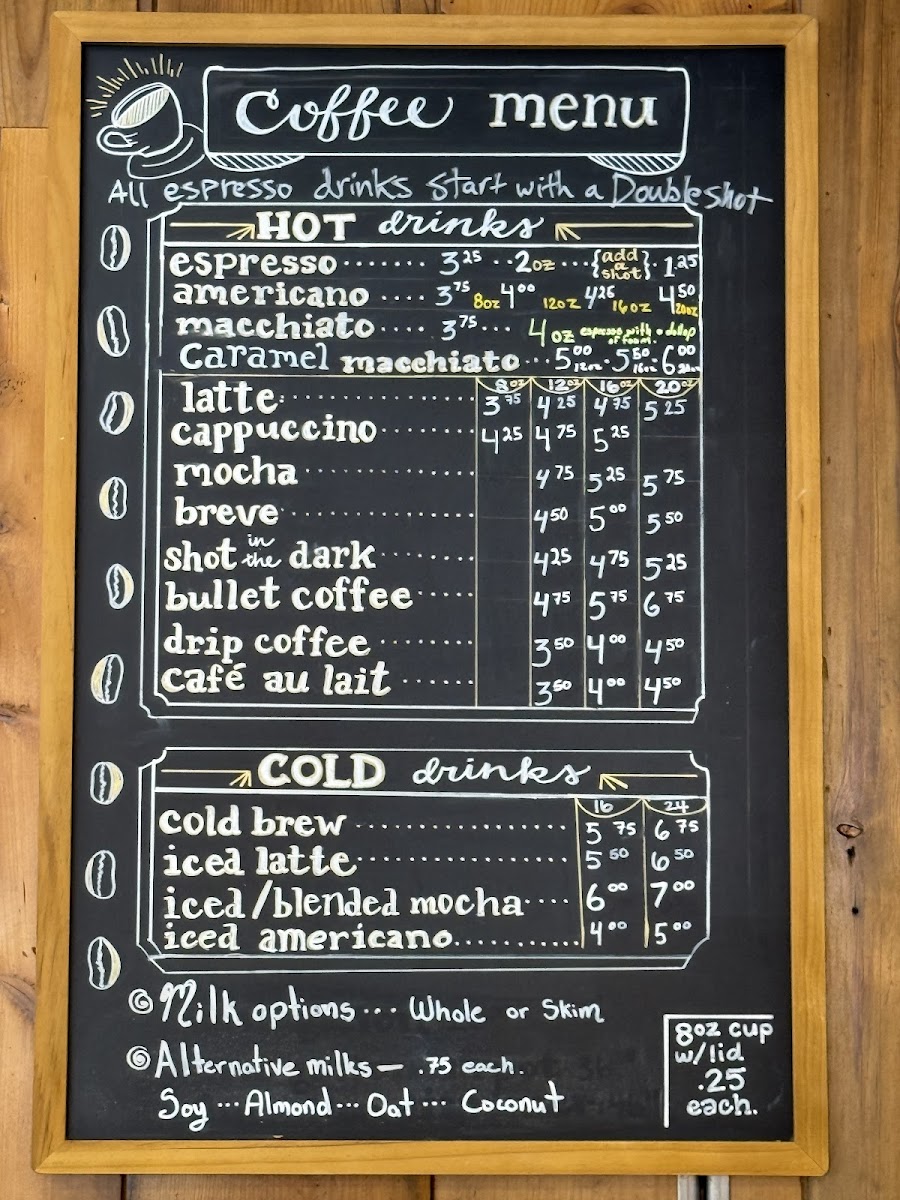 Coffee menu
All espresso drinks start with a Double shot
HOT drinks
espresso ······· 3 25 ·· 2oz ··· {add a shot} · 1 25
americano ···· 3 75 8oz 4 00 12oz 4 25 16oz 4 50 20oz
macchiato ···· 3 75 ··· 4 oz espresso with a dollop of foam.
Caramel macchiato ·· 5 00 12oz · 5 50 16oz · 6 00 20oz
8oz 12oz 16oz 20oz
latte 3 75 4 25 4 75 5 25
cappuccino 4 25 4 75 5 25
mocha 4 75 5 25 5 75
breve 4 50 5 00 5 50
shot in the dark 4 25 4 75 5 25
bullet coffee 4 75 5 75 6 75
drip coffee 3 50 4 00 4 50
café au lait 3 50 4 00 4 50
COLD drinks
16 24
cold brew 5 75 6 75
iced latte 5 50 6 50
iced/blended mocha 6 00 7 00
iced americano 4 00 5 00
Milk options ... Whole or Skim
Alternative milks — .75 each.
Soy ... Almond ... Oat ... Coconut
8oz cup
w/lid
.25
each.